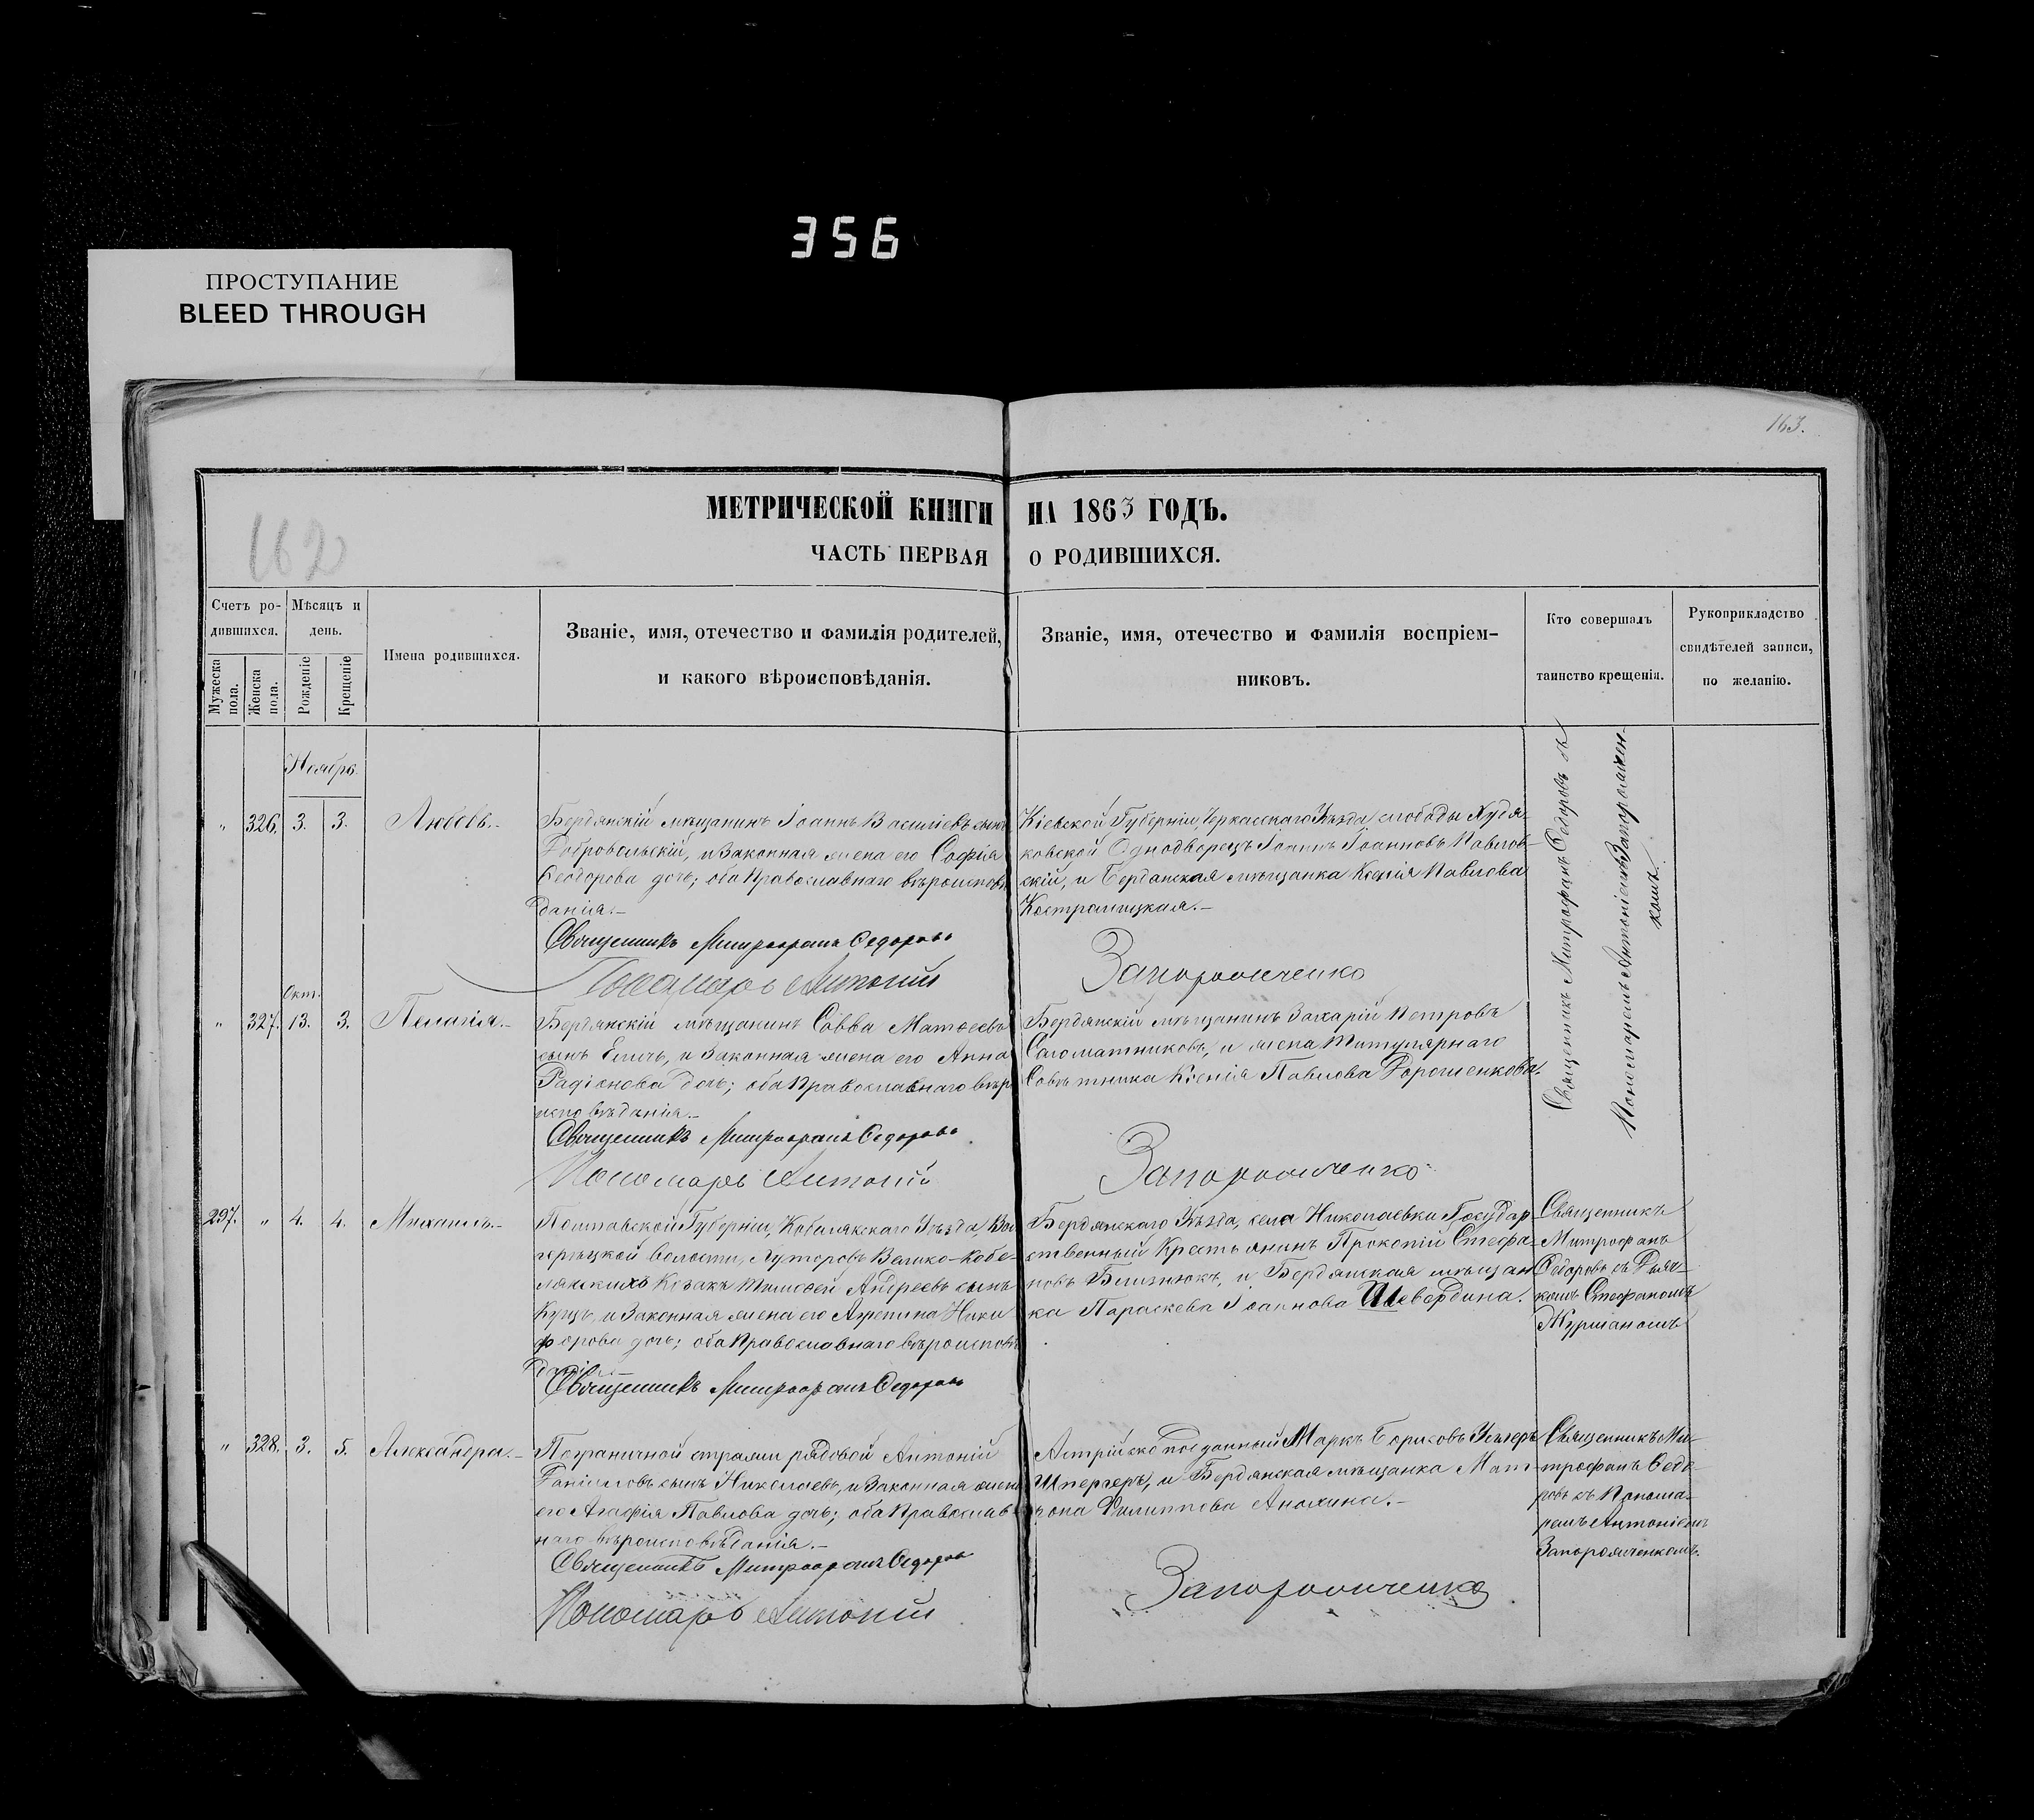 356
ПРОСТУПАНИЕ
BLEED THROUGH
163.
162
МЕТРИЧЕСКОЙ КНИГИ НА 1863 ГОДЪ.
ЧАСТЬ ПЕРВАЯ О РОДИВШИХСЯ.
Счетъ ро-
дившихся.
Мужеска
пола.
Женска
пола.
Мѣсяцъ и
день.
Рожденіе
Крещеніе
Имена родившихся.
Званіе, имя, отечество и фамилія родителей,
и какого вѣроисповѣданія.
Званіе, имя, отечество и фамилія воспріем-
никовъ.
Кто совершалъ
таинство крещенія.
Рукоприкладство
свидѣтелей записи,
по желанію.
Ноябрь
" 326. 3. 3. Любовь.-
Бердянскій мѣщанинъ Іоаннъ Василіевъ сынъ
Добровольскій, и законная жена его Софія
Ѳеодорова дочь; оба Православнаго вѣроисповѣ
данія.-
Священникъ Митрофанъ Ѳедоровъ
Пономарь Антоній
Кіевской Губерніи, Черкасскаго Уѣзда, слободы Худя-
ковской Однодворецъ Іоаннъ Іоанновъ Павлов-
скій, и Бердянская мѣщанка Ксенія Павлова
Костромицкая.-
Запорожченко
Священникъ Митрофанъ Ѳедоровъ съ
Пономаремъ Антоніемъ Запорожчен-
комъ.
Окт.
" 327. 13. 3. Пелагія.-
Бердянскій мѣщанинъ Савва Матѳеевъ
сынъ Емичь, и законная жена его Анна
Радіонова дочь; оба Православнаго вѣро
исповѣданія.-
Священникъ Митрофанъ Ѳедоровъ
Пономарь Антоній
Бердянскій мѣщанинъ Захарій Петровъ
Саломатниковъ, и жена Титулярнаго
Совѣтника Ксенія Павлова Дорошенкова.
Запорожченко
297. " 4. 4. Михаилъ.-
Полтавской Губерніи, Кобелякскаго Уѣзда,
волости, Хуторовъ Велико-Кобе-
лякскихъ Козакъ Тимоѳей Андреевъ сынъ
Куцъ, и законная жена его Агрепина Ники-
форова дочь; оба Православнаго вѣроисповѣ
данія.-
Священникъ Митрофанъ Ѳедоровъ
Бердянскаго Уѣзда, села Николаевки Государ-
ственный Крестьянинъ Прокопій Стефа-
новъ Близнюкъ, и Бердянская мѣщан
ка Параскева Іоаннова Шевердина.
Священникъ
Митрофанъ
Ѳедоровъ съ Дьяч-
комъ Стефаномъ
Журманомъ
" 328. 3. 5. Александра.-
Пограничной стражи рядовой Антоній
Даніиловъ сынъ Николаевъ, и законная жена
его Агафія Павлова дочь; оба Православ-
наго вѣроисповѣданія.-
Священникъ Митрофанъ Ѳедоровъ
Пономарь Антоній
Австрійско подданный Маркъ Борисовъ
Шпергеръ, и Бердянская мѣщанка Мат-
рона Филиппова Анохина.-
Запорожченко
Священникъ Ми-
трофанъ Ѳедо-
ровъ съ Понома-
ремъ Антоніемъ
Запорожченкомъ.